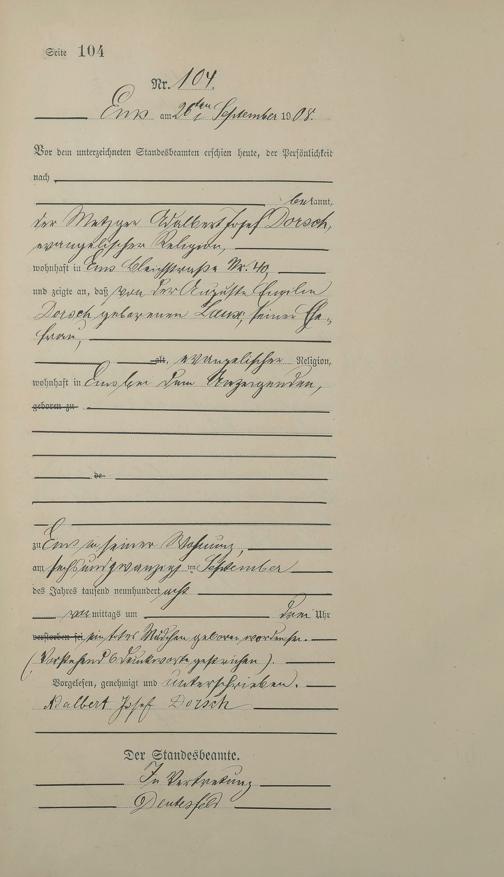 Seite 104
Nr. 104.
Ems am 26ten September 1908.
Vor dem unterzeichneten Standesbeamten erschien heute, der Persönlichkeit
nach
bekannt,
der Metzger Adalbert Josef Dorsch,
evangelischer Religion,
wohnhaft in Ems Bleichstraße Nr. 40,
und zeigte an, daß von der Auguste Emilie
Dorsch geborenen Laux, seiner Ehe-
frau,
alt, evangelischer Religion,
wohnhaft in Ems bei dem Anzeigenden,
geboren zu
de
zu Ems in seiner Wohnung,
am sechsundzwanzigsten September
des Jahres tausend neunhundert acht
vormittags um Uhr
verstorben sei, ein totes Mädchen geboren worden sei.
(Vorstehend 6 Druckworte gestrichen).
Vorgelesen, genehmigt und unterschrieben.
Adalbert Josef Dorsch
Der Standesbeamte.
In Vertretung